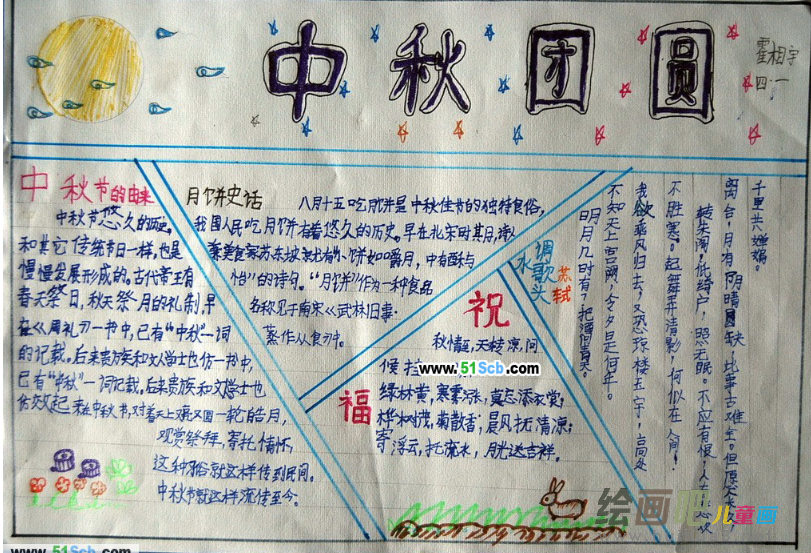 中秋团圆
霍相宇
四·一
中秋节的由来
中秋节悠久的历史,
和其它传统节日一样,也是
慢慢发展形成的。古代帝王有
春天祭日,秋天祭月的礼制,早
在《周礼》一书中,已有“中秋”一词
的记载。后来贵族和文人学士也仿一书中,
已有“中秋”一词记载,后来贵族和文人学士也
仿效起来中秋节,对着天上又亮又圆一轮皓月,
观赏祭拜,寄托情怀,
这种习俗就这样传到民间。
中秋节就这样流传至今。
月饼史话
八月十五吃月饼是中秋佳节的独特食俗,
我国人民吃月饼有着悠久的历史。早在北宋时其月,诗人
美食家苏东坡就有“小饼如嚼月,中有酥与
怡”的诗句。“月饼”作为一种食品
名称见于南宋《武林旧事·
蒸作从食》中。
水调歌头
苏轼
明月几时有?把酒问青天。
不知天上宫阙,今夕是何年。
我欲乘风归去,又恐琼楼玉宇,高处
不胜寒。起舞弄清影,何似在人间!
转朱阁,低绮户,照无眠。不应有恨,
离合,月有阴晴圆缺,此事古难全。但愿人长久,
千里共婵娟。
祝
福
秋情至,天转凉,问
候
绿林黄,寒雾深,莫忘添衣裳;
桦树茂,菊散香;晨风抚清凉;
寄浮云,托流水,月光达吉祥。
www.51Scb.com
绘画吧儿童画
www.51Scb.com